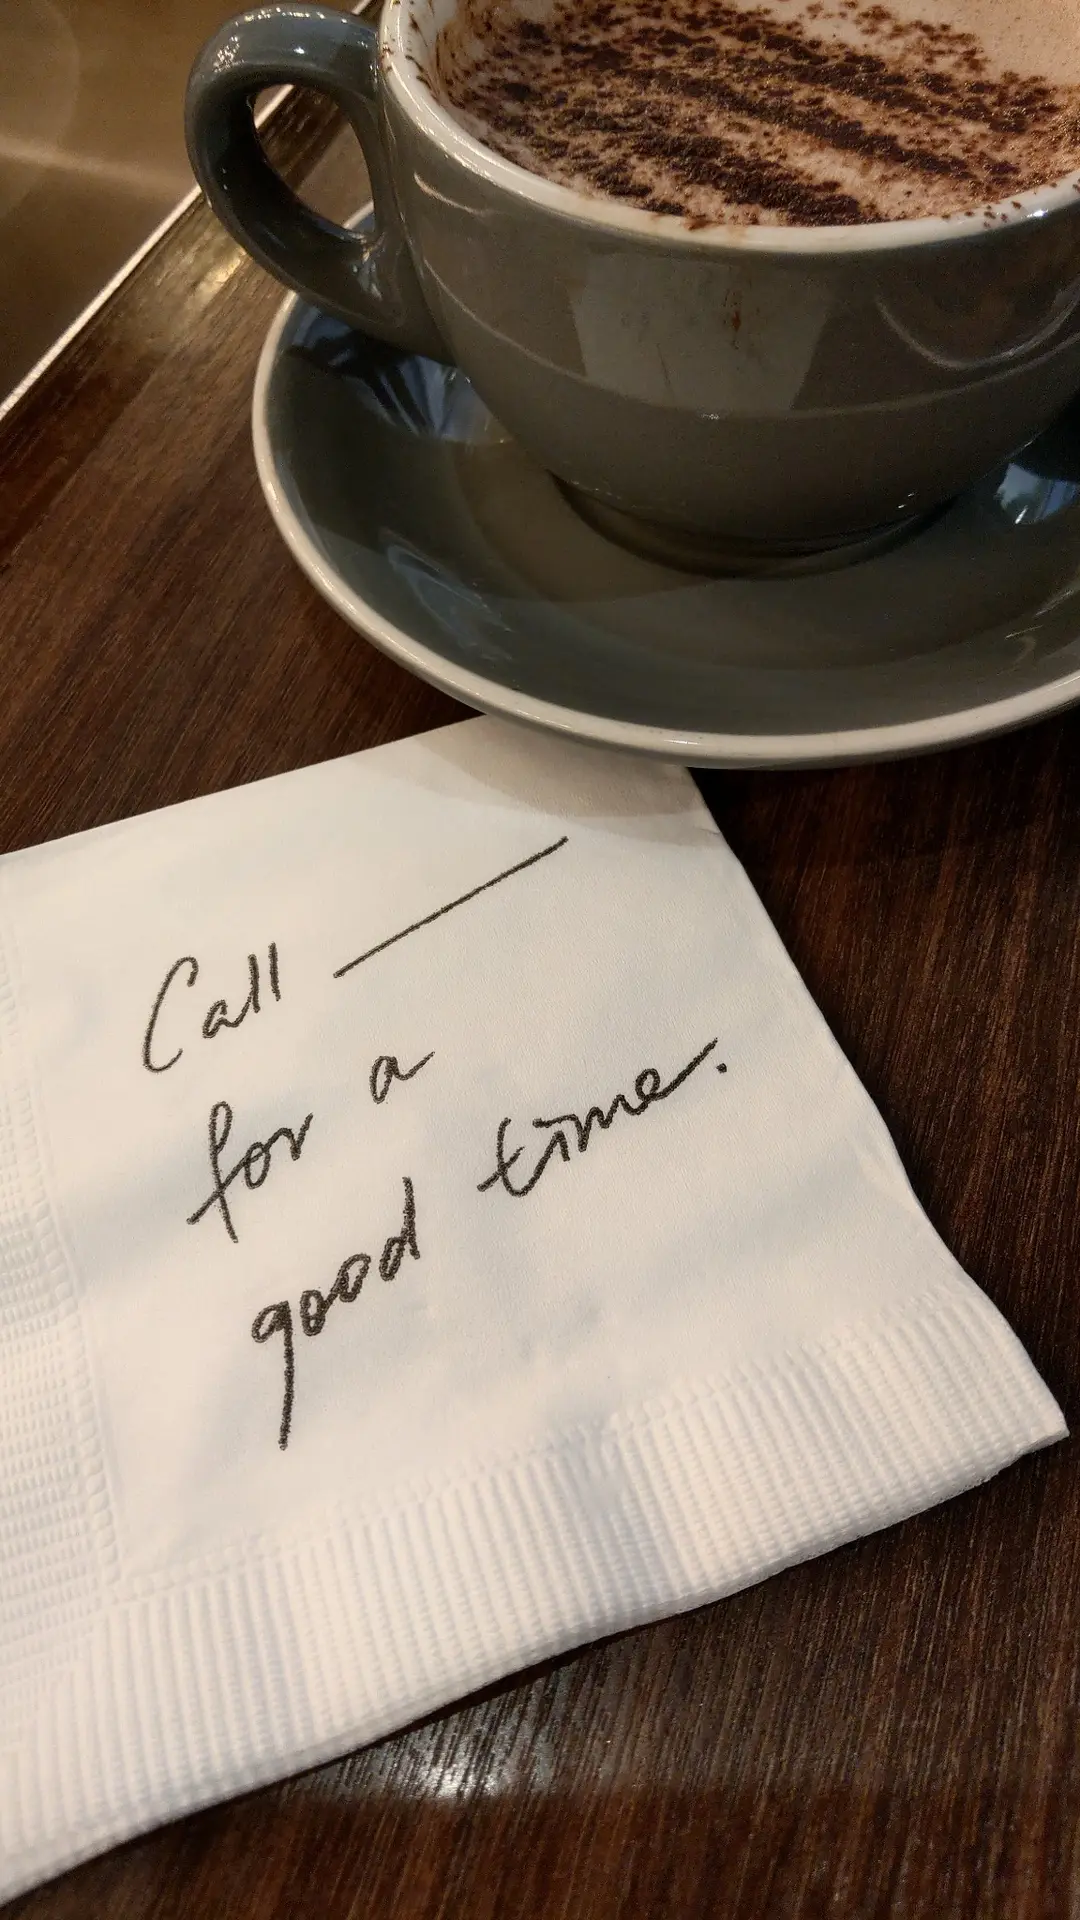 Call ——
for a
good time.